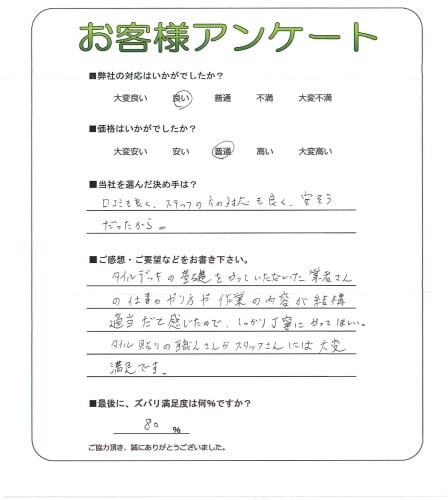 お客様アンケート
■弊社の対応はいかがでしたか？
大変良い 良い 普通 不満 大変不満
■価格はいかがでしたか？
大変安い 安い 普通 高い 大変高い
■当社を選んだ決め手は？
口コミも良く、スタッフの方の対応も良く、安そう
だったから。
■ご感想・ご要望などをお書き下さい。
タイルデッキの基礎をやっていただいた業者さん
の仕事のやり方や作業の内容が結構
適当だと感じたので、しっかり丁寧にやってほしい。
タイル貼りの職人さんやスタッフさんには大変
満足です。
■最後に、ズバリ満足度は何％ですか？
80 ％
ご協力頂き、誠にありがとうございました。